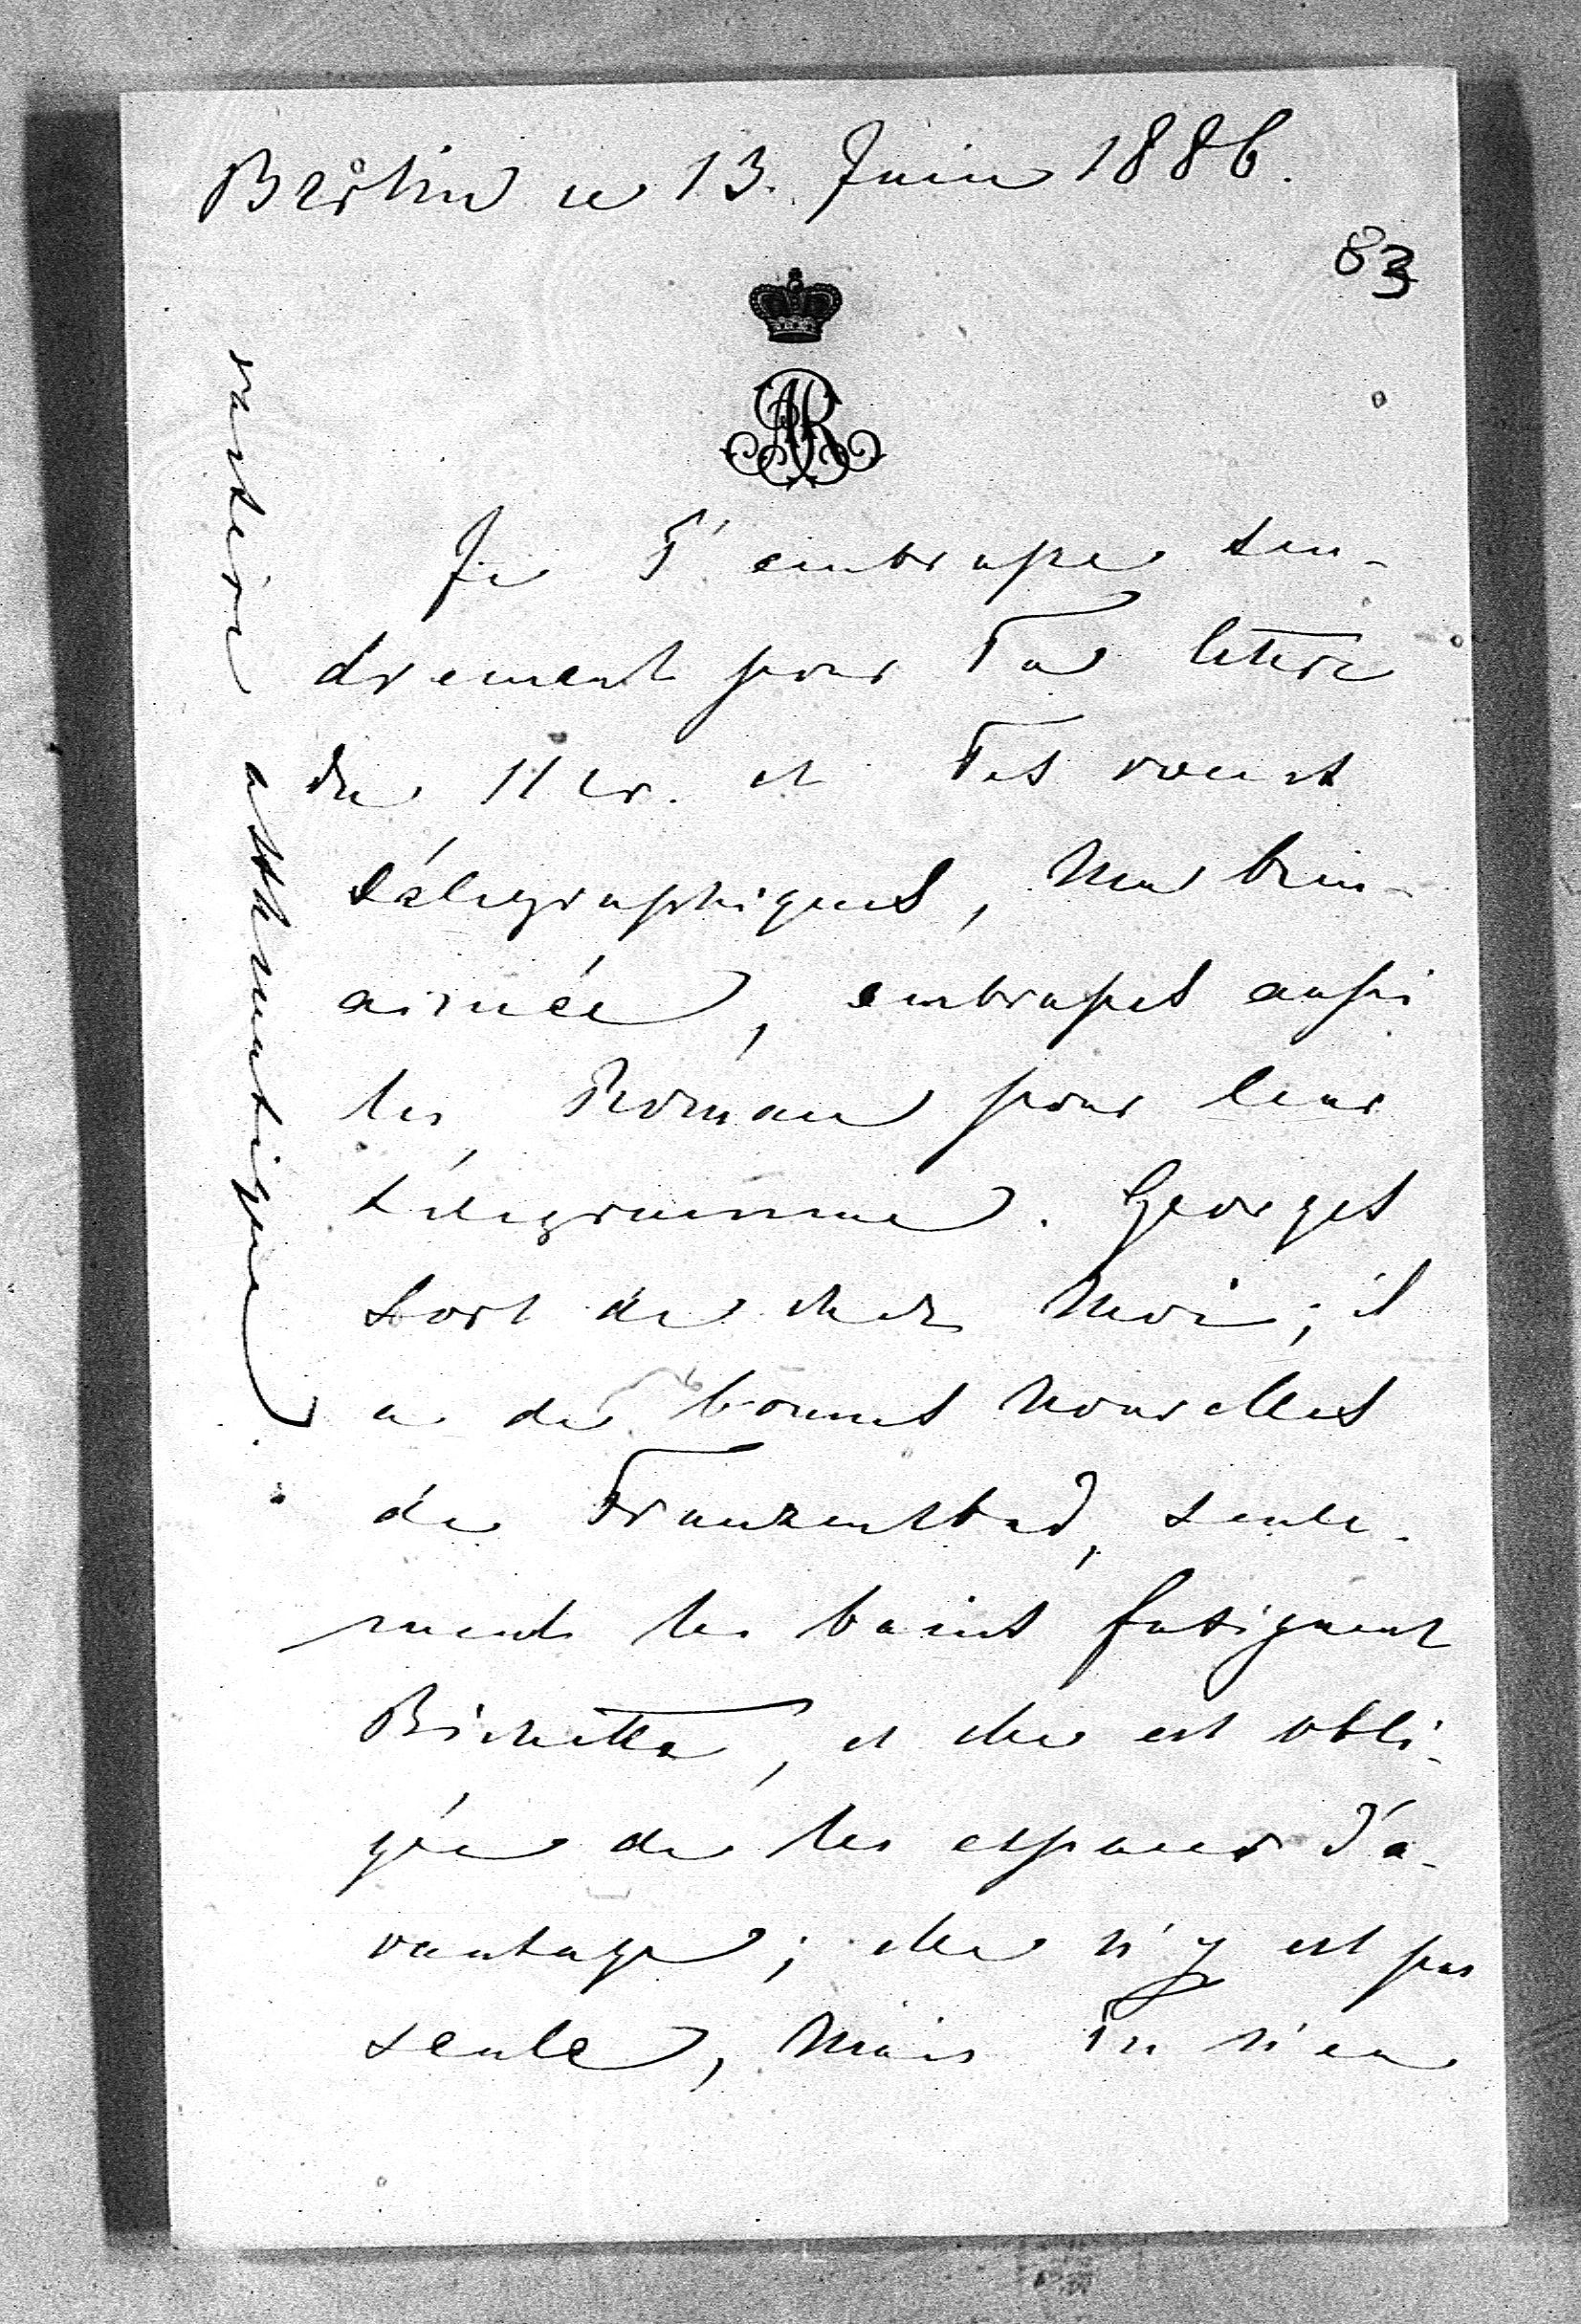 Berlin ce 13. Juin 1886.
83
AR
Je T'embrasse ten-
drement pour Ta lettre
du 11 cr. et Tes voeux
télégraphiques, Ma bien-
aimée, embrasses aussi
les Roman pour leur
télégramme. Georges
sort de chez Moi; il
a de bonnes nouvelles
de Franzensbad, seule-
ment les bains fatiguent
Bichette, et elle est obli-
gée de les espacer d'a-
vantage; elle n'y est pas
seule, mais Tu n'en
asthmatique